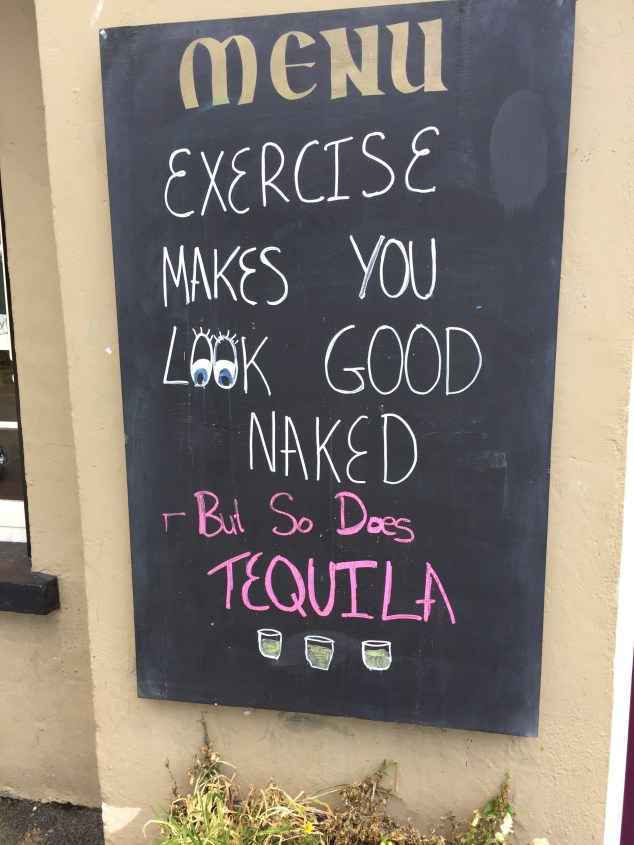 MENU
EXERCISE
MAKES YOU
LOOK GOOD
NAKED
- But So Does
TEQUILA